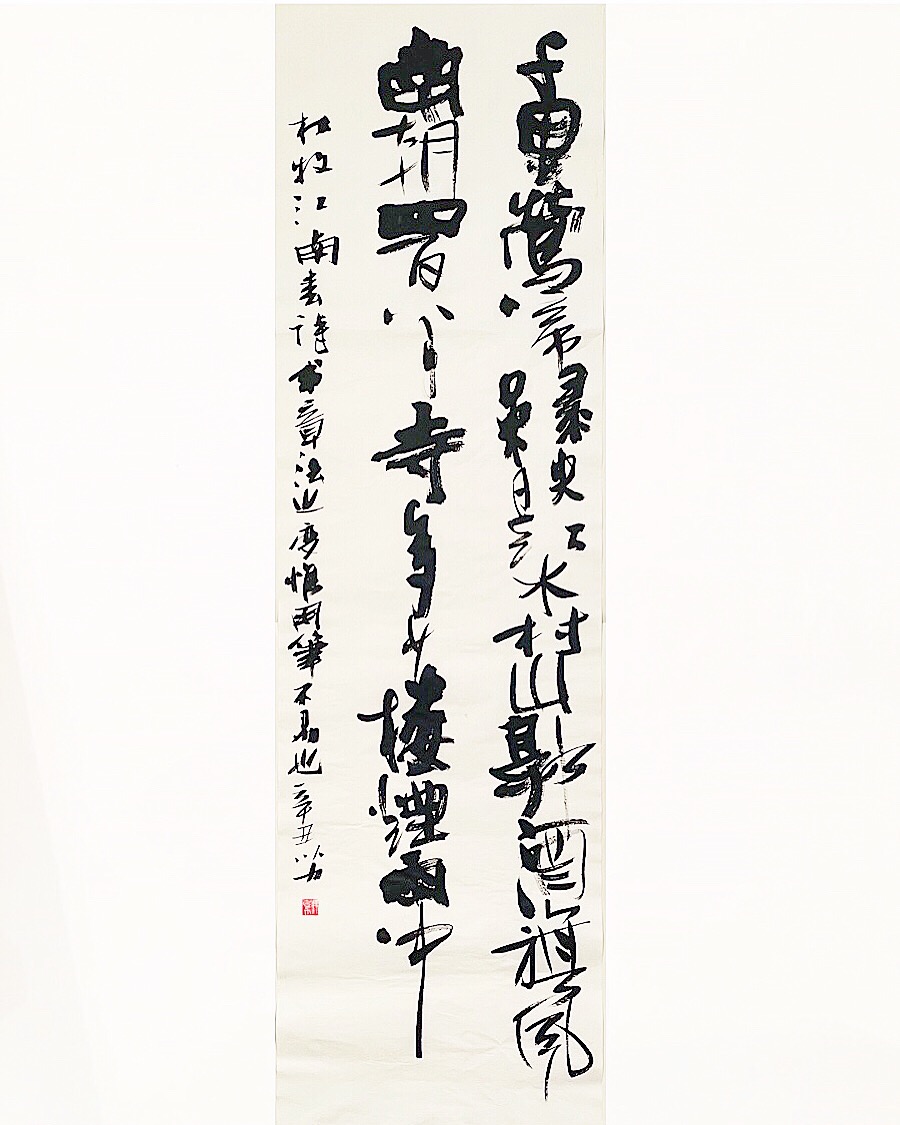 千里鶯啼綠映紅水村山郭酒旗風
南朝四百八十寺多少樓煙雨中
杜牧江南春詩書章法變惟用筆不易也辛丑